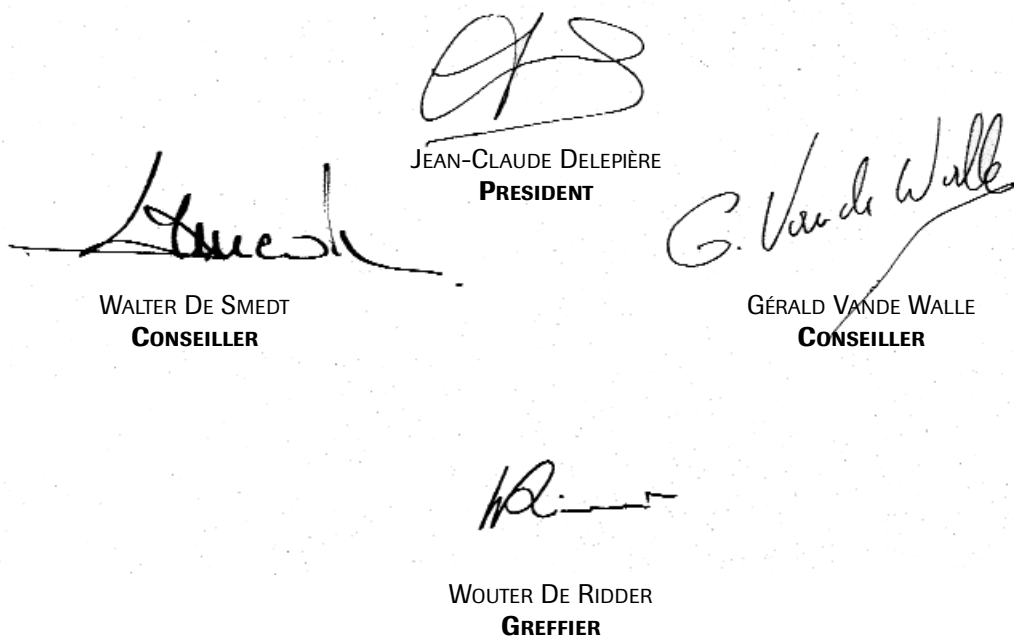 JEAN-CLAUDE DELEPIÈRE
PRESIDENT
G. Vande Walle
WALTER DE SMEDT
CONSEILLER
GÉRALD VANDE WALLE
CONSEILLER
WOUTER DE RIDDER
GREFFIER